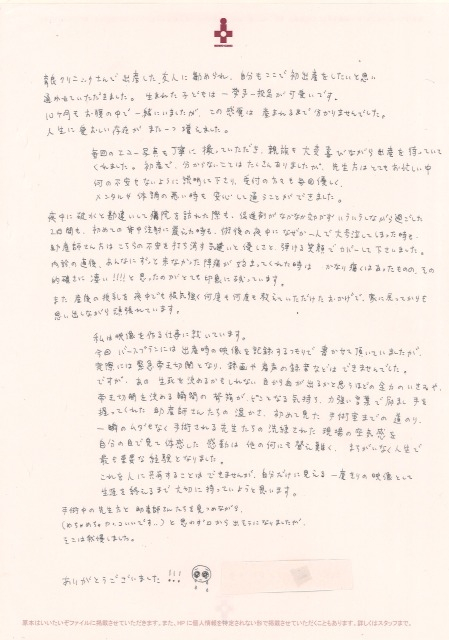 育良クリニックさんで出産した友人に勧められ、自分もここで初出産をしたいと思い
通わせていただきました。生まれた子どもは一挙手一投足が可愛いです。
10ヶ月もお腹の中で一緒にいましたが、この感覚は産まれるまで分かりませんでした。
人生に愛おしい存在がまた一つ増えました。
毎回のエコー写真も丁寧に撮っていただき、親族も大変喜びながら出産を待っていて
くれました。初産で、分からないことはたくさんありましたが、先生方はとてもお忙しい中
何の不安もないように説明して下さり、受付の方々も毎回優しく、
メンタルや体調の悪い時も安心して通うことができました。
夜中に破水と勘違いして病院を訪れた際も、促進剤がなかなか効かずイライラしながら過ごした
2日間も、初めての背中注射に震えた時も、術後の夜中になぜか一人で大号泣してしまった時も、
助産師さん方はこちらの不安を打ち消す気遣いと優しさと、弾ける笑顔でカバーして下さいました。
内診の直後、あんなにずっと来なかった陣痛がすぐきてくれた時は かなり痛くはあったものの、その
的確さに凄い!!!!と思ったのがとても印象に残っています。
また産後の授乳を夜中でも根気強く何度も何度も教えていただけたおかげで、家に戻ってからも
思い出しながら頑張れています。
私は映像を作る仕事に就いています。
今回バースプランには出産時の映像を記録するつもりで書かせて頂いていましたが、
実際には緊急帝王切開となり、録画や産声の録音などはできませんでした。
ですが、あの生死を決めるかもしれない
帝王切開を決める瞬間の
握ってくれた助産師さんたちの温かさ、初めて見た手術室までの道のり、
一瞬のムダもなく手術される先生たちの洗練された現場の空気感を
自分の目で見て体感した感動は他の何にも替え難く、まちがいなく人生で
最も重要な経験となりました。
これを人に共有することはできませんが、自分だけに見える一度きりの映像として
生涯を終えるまで大切に持っていようと思います。
手術中の先生方と助産師さんたちを見つめながら、
(めちゃめちゃかっこいいです..)と思わず口から出そうになりましたが、
そこは我慢しました。
ありがとうございました!!!
原本はいいたいぞファイルに掲載させていただきます。また、HPに個人情報を特定されない形で掲載させていただくこともあります。詳しくはスタッフまで。